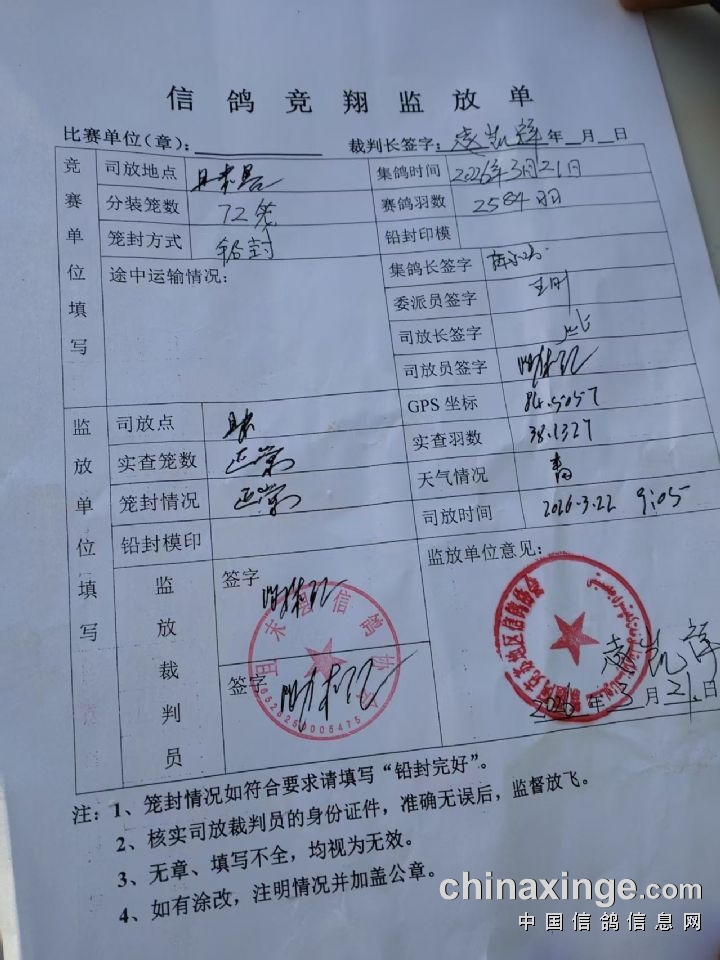 信鸽竞翔监放单
比赛单位(章): 裁判长签字: 凯 年 月 日
竞赛单位填写
司放地点 且末县 集鸽时间 2026年3月21日
分装笼数 72笼 赛鸽羽数 2584羽
笼封方式 铅封 铅封印模
途中运输情况: 集鸽长签字
委派员签字 王刚
司放长签字
司放员签字
监放单位填写
司放点 且末 GPS坐标 84.5057
实查笼数 正常 实查羽数 38.1327
笼封情况 正常 天气情况
铅封模印 司放时间 2026.3.22 9:05
监放裁判员 签字 监放单位意见:
签字
且末县信鸽协会
6528250006475
地区信鸽协会
凯
2026年3月21日
注: 1、笼封情况如符合要求请填写“铅封完好”。
2、核实司放裁判员的身份证件，准确无误后，监督放飞。
3、无章、填写不全，均视为无效。
4、如有涂改，注明情况并加盖公章。
chinaxinge.com
中国信鸽信息网